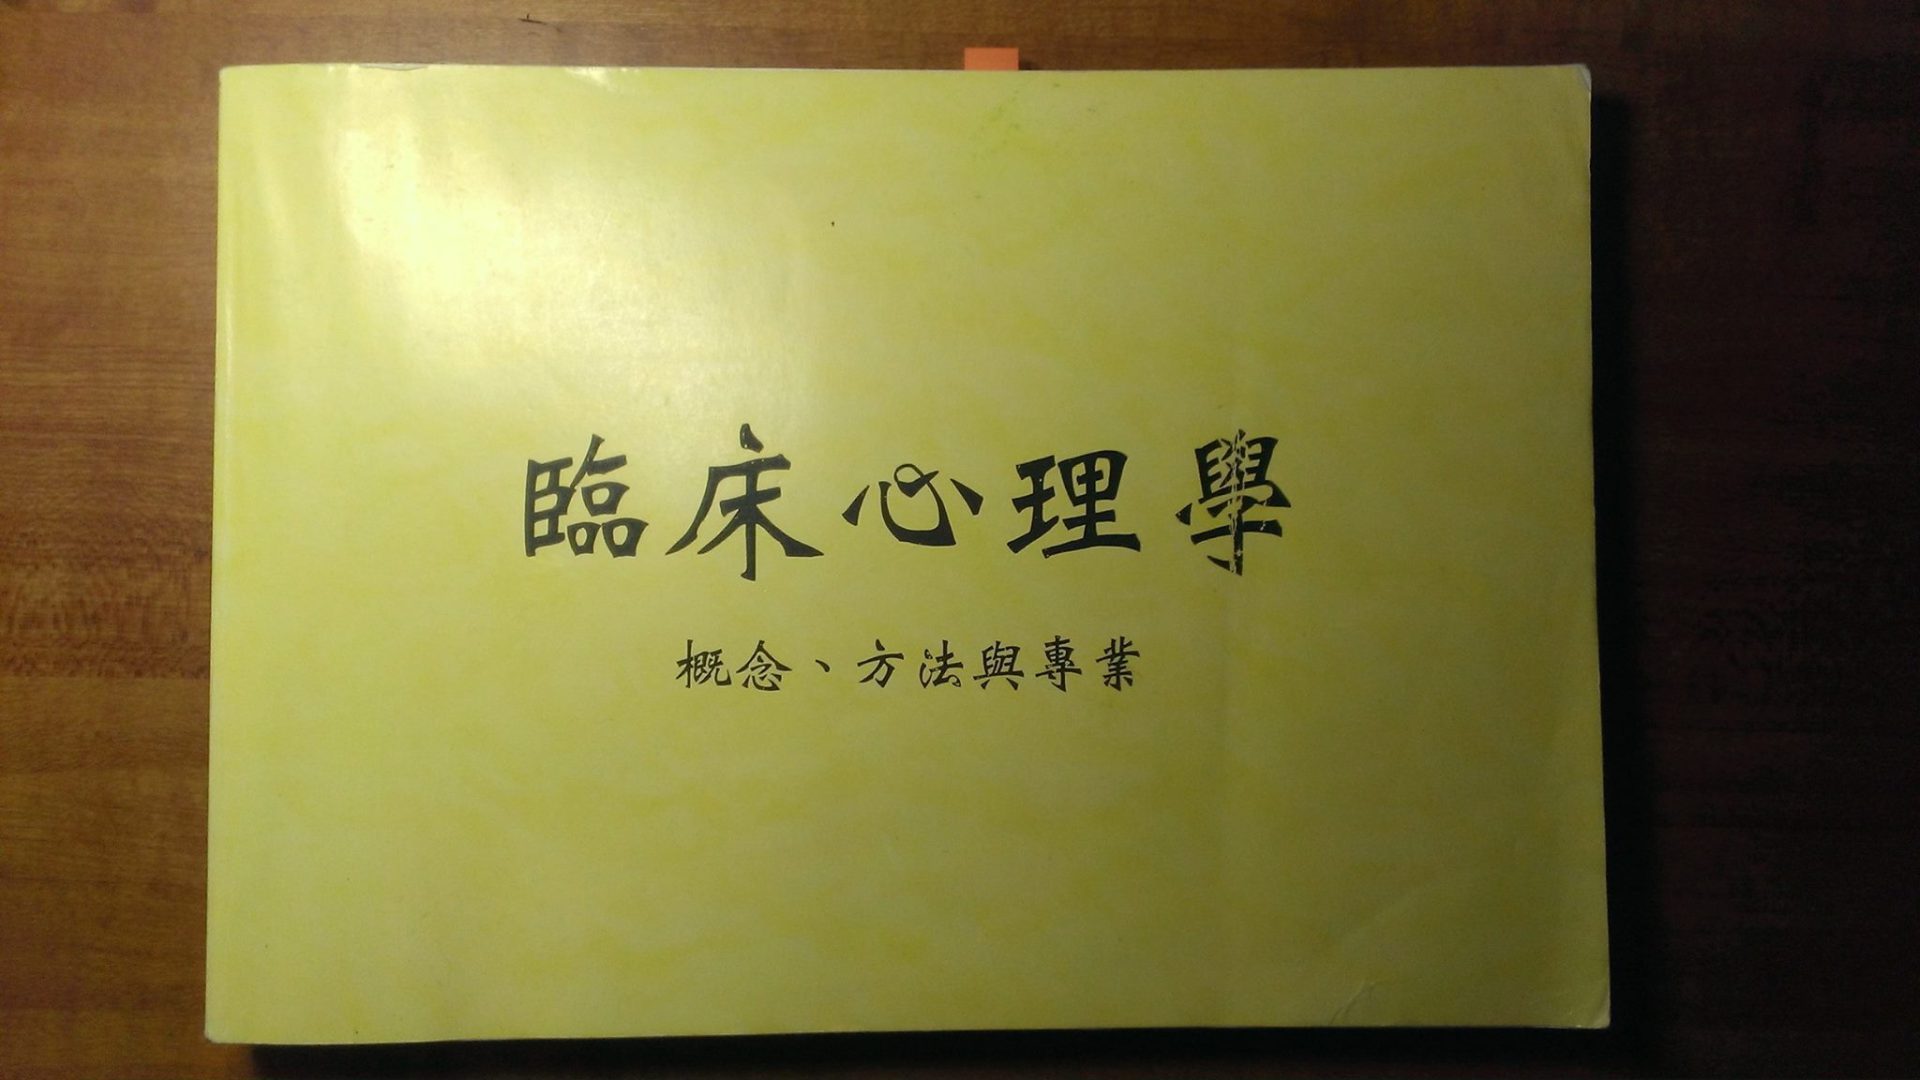 臨床心理學
概念、方法與專業